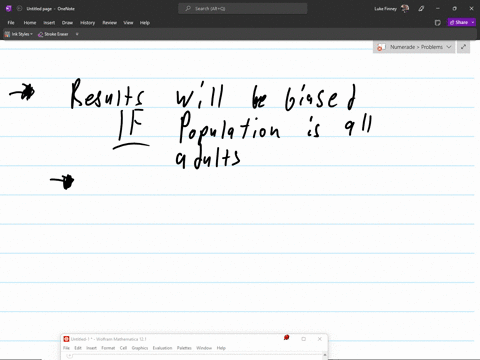 Untitled page - OneNote
Search (Alt+Q)
Luke Finney
File Home Insert Draw History Review View Help
Share
Ink Styles
Stroke Eraser
Numerade > Problems
→ Results will be biased
IF Population is all
adults
→
Untitled 1 * - Wolfram Mathematica 12.1
File Edit Insert Format Cell Graphics Evaluation Palettes Window Help